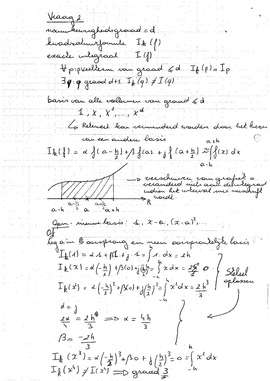 Vraag 2
nauwkeurigheidsgraad = d
kwadratuurformule I_k(f)
exacte integraal I(f)
∀p: p veelterm van graad ≤ d I_k(p) = I_p
∃q q graad d+1 I_k(q) ≠ I(q)
basis van alle veeltermen van graad ≤ d
1, x, x², ..., x^d
↳ Rekenwerk kan verminderd worden door het kiezen
van een andere basis
I_k(f) = α f(a-h/2) + β f(a) + γ f(a+h/2) ≈ ∫ f(x) dx
a+h
a-h
verschuiven van grafiek
verandert niet aan de integraal
a-h a a+h R
nieuwe basis: 1, x-a, (x-a)²...
Of
leg a in oorsprong en neem oorspronkelijke basis
I_k(1) = α·1 + β·1 + γ·1 = ∫ 1 dx = 2h
I_k(x) = α(-h/2) + β(0) + γ(h/2) = ∫ x dx = 0
I_k(x²) = α(-h/2)² + β(0) + γ(h/2)² = ∫ x² dx = 2h³/3
Stelsel
oplossen
α = γ
⇒ α = 4h/3
β = -2h/3
I_k(x³) = α(-h/2)³ + β0 + γ(h/2)³ = 0 = ∫ x³ dx
I_k(x⁴) ≠ I(x⁴) ⇒ graad 3